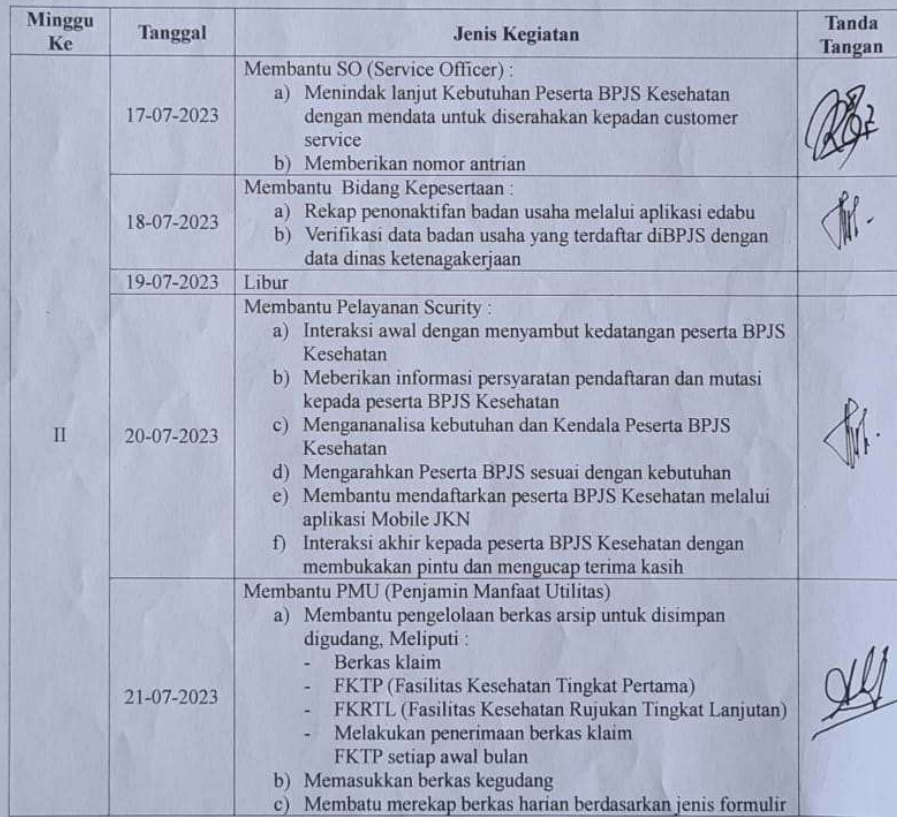 Minggu Ke
Tanggal
Jenis Kegiatan
Tanda Tangan
II
17-07-2023
Membantu SO (Service Officer) :
a) Menindak lanjut Kebutuhan Peserta BPJS Kesehatan
dengan mendata untuk diserahakan kepadan customer
service
b) Memberikan nomor antrian
18-07-2023
Membantu Bidang Kepesertaan :
a) Rekap penonaktifan badan usaha melalui aplikasi edabu
b) Verifikasi data badan usaha yang terdaftar diBPJS dengan
data dinas ketenagakerjaan
19-07-2023
Libur
20-07-2023
Membantu Pelayanan Scurity :
a) Interaksi awal dengan menyambut kedatangan peserta BPJS
Kesehatan
b) Meberikan informasi persyaratan pendaftaran dan mutasi
kepada peserta BPJS Kesehatan
c) Mengananalisa kebutuhan dan Kendala Peserta BPJS
Kesehatan
d) Mengarahkan Peserta BPJS sesuai dengan kebutuhan
e) Membantu mendaftarkan peserta BPJS Kesehatan melalui
aplikasi Mobile JKN
f) Interaksi akhir kepada peserta BPJS Kesehatan dengan
membukakan pintu dan mengucap terima kasih
21-07-2023
Membantu PMU (Penjamin Manfaat Utilitas)
a) Membantu pengelolaan berkas arsip untuk disimpan
digudang, Meliputi :
- Berkas klaim
- FKTP (Fasilitas Kesehatan Tingkat Pertama)
- FKRTL (Fasilitas Kesehatan Rujukan Tingkat Lanjutan)
- Melakukan penerimaan berkas klaim
FKTP setiap awal bulan
b) Memasukkan berkas kegudang
c) Membatu merekap berkas harian berdasarkan jenis formulir